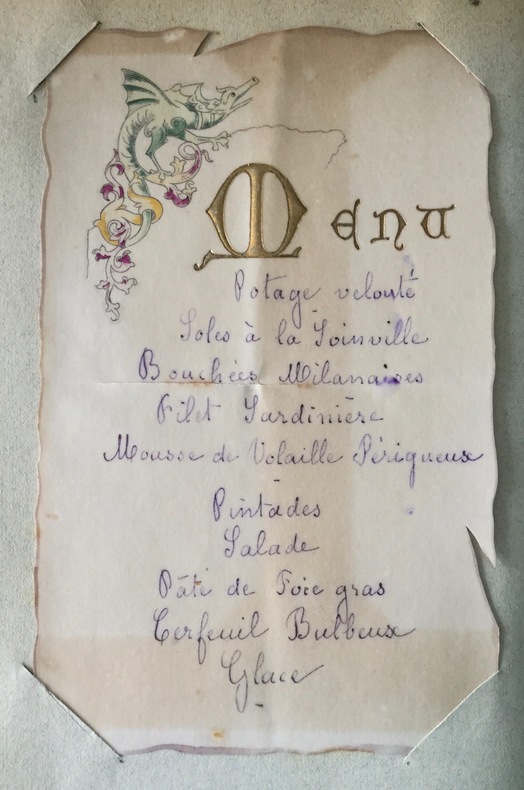 Menu
Potage velouté
Soles à la Joinville
Bouchées Milanaises
Filet Jardinière
Mousse de Volaille Périgueux
Pintades
Salade
Pâté de Foie gras
Cerfeuil Bulbeux
Glace